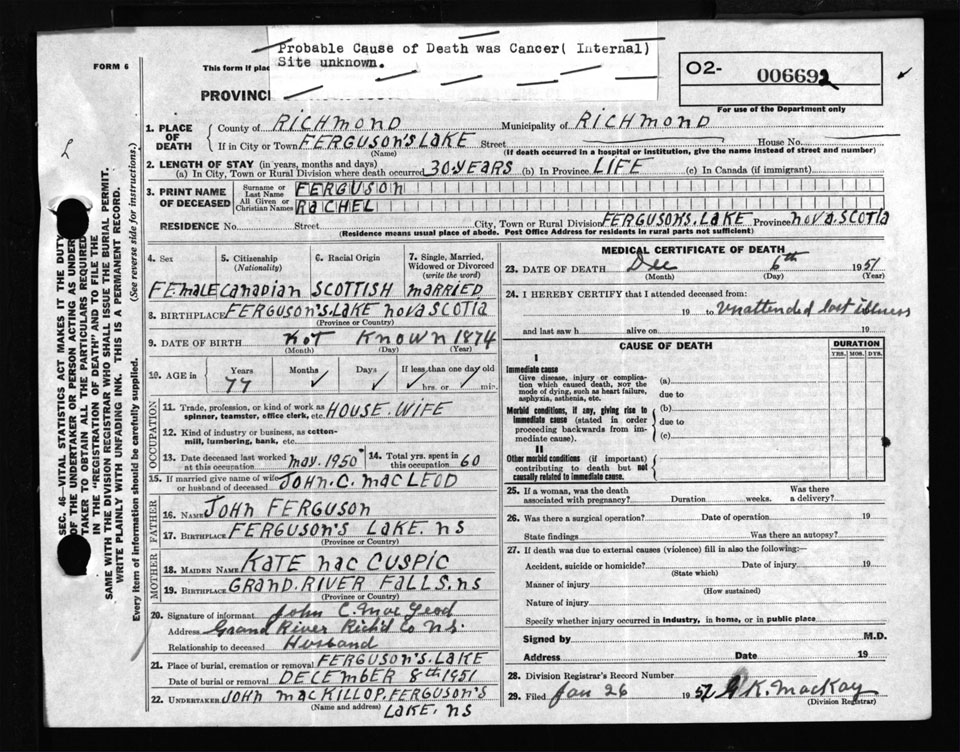 Probable Cause of Death was Cancer( Internal)
Site unknown.
FORM 6
This form if plac
PROVINC
O2- 006692
For use of the Department only
1. PLACE OF DEATH
County of RICHMOND Municipality of RICHMOND
If in City or Town FERGUSON'S LAKE Street House No.
(Name) (If death occurred in a hospital or institution, give the name instead of street and number)
2. LENGTH OF STAY (in years, months and days)
(a) In City, Town or Rural Division where death occurred 30 YEARS (b) In Province LIFE (c) In Canada (if immigrant)
3. PRINT NAME OF DECEASED
Surname or Last Name FERGUSON
All Given or Christian Names RACHEL
RESIDENCE No. Street City, Town or Rural Division FERGUSONS. LAKE Province NOVA SCOTIA
(Residence means usual place of abode. Post Office Address for residents in rural parts not sufficient)
4. Sex 5. Citizenship (Nationality) 6. Racial Origin 7. Single, Married, Widowed or Divorced (write the word)
FEMALE CANADIAN SCOTTISH MARRIED
8. BIRTHPLACE FERGUSON'S. LAKE NOVA SCOTIA
(Province or Country)
9. DATE OF BIRTH NOT KNOWN 1874
(Month) (Day) (Year)
10. AGE in Years Months Days If less than one day old
77 ✓ ✓ ✓ hrs. or ✓ min.
OCCUPATION
11. Trade, profession, or kind of work as spinner, teamster, office clerk, etc. HOUSE. WIFE
12. Kind of industry or business, as cotton-mill, lumbering, bank, etc.
13. Date deceased last worked at this occupation MAY. 1950 14. Total yrs. spent in this occupation 60
15. If married give name of wife or husband of deceased JOHN. C. MACLEOD
FATHER
16. NAME JOHN FERGUSON
17. BIRTHPLACE FERGUSON'S LAKE. NS
(Province or Country)
MOTHER
18. MAIDEN NAME KATE MAC CUSPIC
19. BIRTHPLACE GRAND. RIVER FALLS. NS
(Province or Country)
20. Signature of informant John C. MacLeod
Address Grand River Rich'd Co N.S.
Relationship to deceased Husband
21. Place of burial, cremation or removal FERGUSON'S. LAKE
Date of burial or removal DECEMBER 8th 1951
22. UNDERTAKER JOHN MACKILLOP. FERGUSON'S
(Name and address) LAKE. NS
MEDICAL CERTIFICATE OF DEATH
23. DATE OF DEATH Dec 6th 1951
(Month) (Day) (Year)
24. I HEREBY CERTIFY that I attended deceased from:
19 to Unattended last illness
and last saw h alive on 19
CAUSE OF DEATH DURATION
YRS. MOS. DYS.
I
Immediate cause
Give disease, injury or complication which caused death, NOT the mode of dying, such as heart failure, asphyxia, asthenia, etc.
(a)
due to
Morbid conditions, if any, giving rise to immediate cause (stated in order proceeding backwards from immediate cause).
(b)
due to
(c)
II
Other morbid conditions (if important) contributing to death but not causally related to immediate cause.
25. If a woman, was the death associated with pregnancy? Duration weeks. Was there a delivery?
26. Was there a surgical operation? Date of operation 19
State findings Was there an autopsy?
27. If death was due to external causes (violence) fill in also the following:—
Accident, suicide or homicide? Date of injury 19
(State which)
Manner of injury
(How sustained)
Nature of injury
Specify whether injury occurred in industry, in home, or in public place
Signed by M.D.
Address Date 19
28. Division Registrar's Record Number
29. Filed Jan 26 1952 K. MacKay
(Division Registrar)
SEC. 46—VITAL STATISTICS ACT MAKES IT THE DUTY
OF THE UNDERTAKER OR PERSON ACTING AS UNDER-
TAKER TO OBTAIN ALL THE PARTICULARS REQUIRED
IN THE "REGISTRATION OF DEATH" AND TO FILE THE
SAME WITH THE DIVISION REGISTRAR WHO SHALL ISSUE THE BURIAL PERMIT.
WRITE PLAINLY WITH UNFADING INK. THIS IS A PERMANENT RECORD.
Every item of information should be carefully supplied. (See reverse side for instructions.)